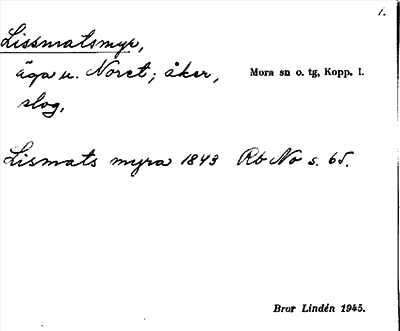 1.
Lissmatsmyr,
äga u. Noret; åker,
slog,
Mora sn o. tg, Kopp. l.
Lismats myra 1843 Rb No s. 65.
Bror Lindén 1945.